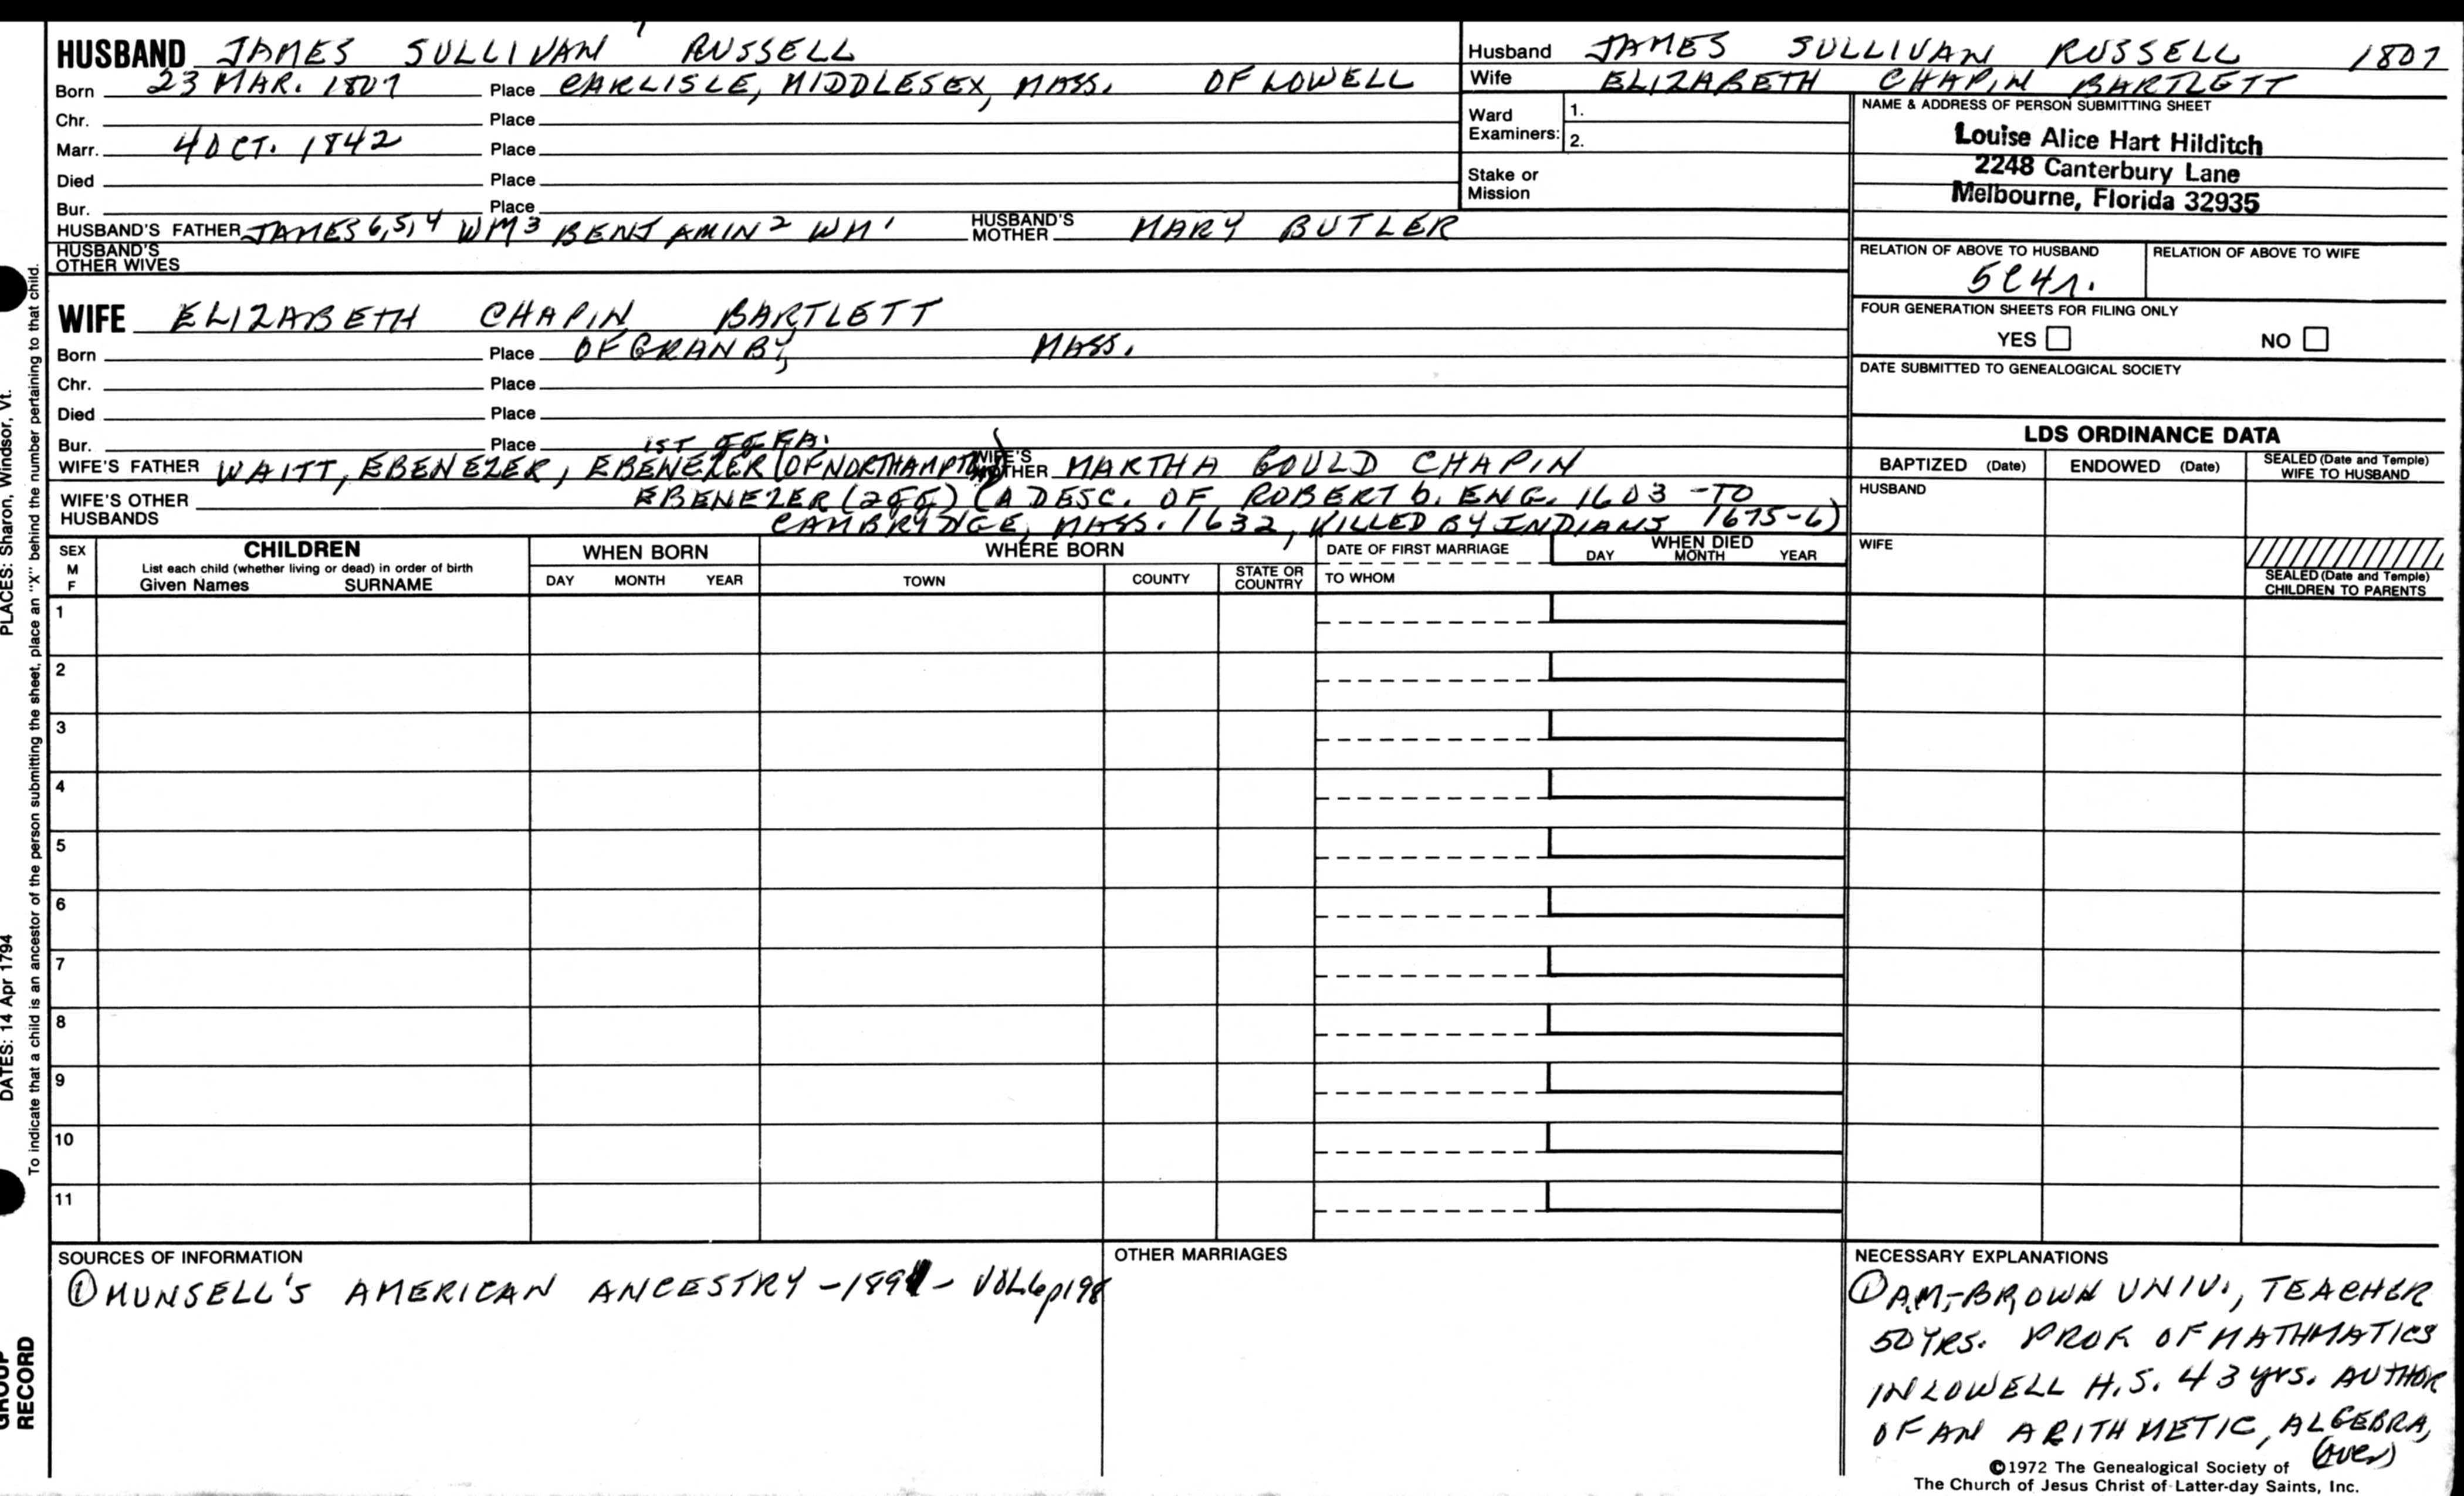 HUSBAND JAMES SULLIVAN RUSSELL
Born 23 MAR. 1807 Place CARLISLE, MIDDLESEX, MASS. OF LOWELL
Chr. Place
Marr. 4 OCT. 1842 Place
Died Place
Bur. Place
HUSBAND'S FATHER JAMES 6,5,4 WM3 BENJAMIN2 WM1 HUSBAND'S MOTHER MARY BUTLER
HUSBAND'S
OTHER WIVES
WIFE ELIZABETH CHAPIN BARTLETT
Born Place OF GRANBY, MASS.
Chr. Place
Died Place
Bur. Place 1ST
WIFE'S FATHER WAITT, EBENEZER, EBENEZER (OF NORTHAMPTON) WIFE'S MOTHER MARTHA GOULD CHAPIN
WIFE'S OTHER
HUSBANDS
EBENEZER (2GG) (A DESC. OF ROBERT b. ENG. 1603 - TO
CAMBRIDGE, MASS. 1632, KILLED BY INDIANS 1675-6)
Husband JAMES SULLIVAN RUSSELL 1807
Wife ELIZABETH CHAPIN BARTLETT
Ward
Examiners:
1.
2.
Stake or
Mission
NAME & ADDRESS OF PERSON SUBMITTING SHEET
Louise Alice Hart Hilditch
2248 Canterbury Lane
Melbourne, Florida 32935
RELATION OF ABOVE TO HUSBAND RELATION OF ABOVE TO WIFE
5C4r.
FOUR GENERATION SHEETS FOR FILING ONLY
YES NO
DATE SUBMITTED TO GENEALOGICAL SOCIETY
LDS ORDINANCE DATA
BAPTIZED (Date) ENDOWED (Date) SEALED (Date and Temple)
WIFE TO HUSBAND
HUSBAND
WIFE
SEALED (Date and Temple)
CHILDREN TO PARENTS
SEX
M
F
CHILDREN
List each child (whether living or dead) in order of birth
Given Names SURNAME
WHEN BORN
DAY MONTH YEAR
WHERE BORN
TOWN COUNTY STATE OR
COUNTRY
DATE OF FIRST MARRIAGE
TO WHOM
WHEN DIED
DAY MONTH YEAR
1
2
3
4
5
6
7
8
9
10
11
SOURCES OF INFORMATION
① MUNSELL'S AMERICAN ANCESTRY - 1891 - VOL6p198
OTHER MARRIAGES
NECESSARY EXPLANATIONS
① A.M.-BROWN UNIV., TEACHER
50 YRS. PROF. OF MATHMATICS
IN LOWELL H.S. 43 yrs. AUTHOR
OF AN ARITHMETIC, ALGEBRA,
(over)
©1972 The Genealogical Society of
The Church of Jesus Christ of Latter-day Saints, Inc.
PLACES: Sharon, Windsor, Vt.
DATES: 14 Apr 1794
To indicate that a child is an ancestor of the person submitting the sheet, place an "X" behind the number pertaining to that child.
GROUP
RECORD